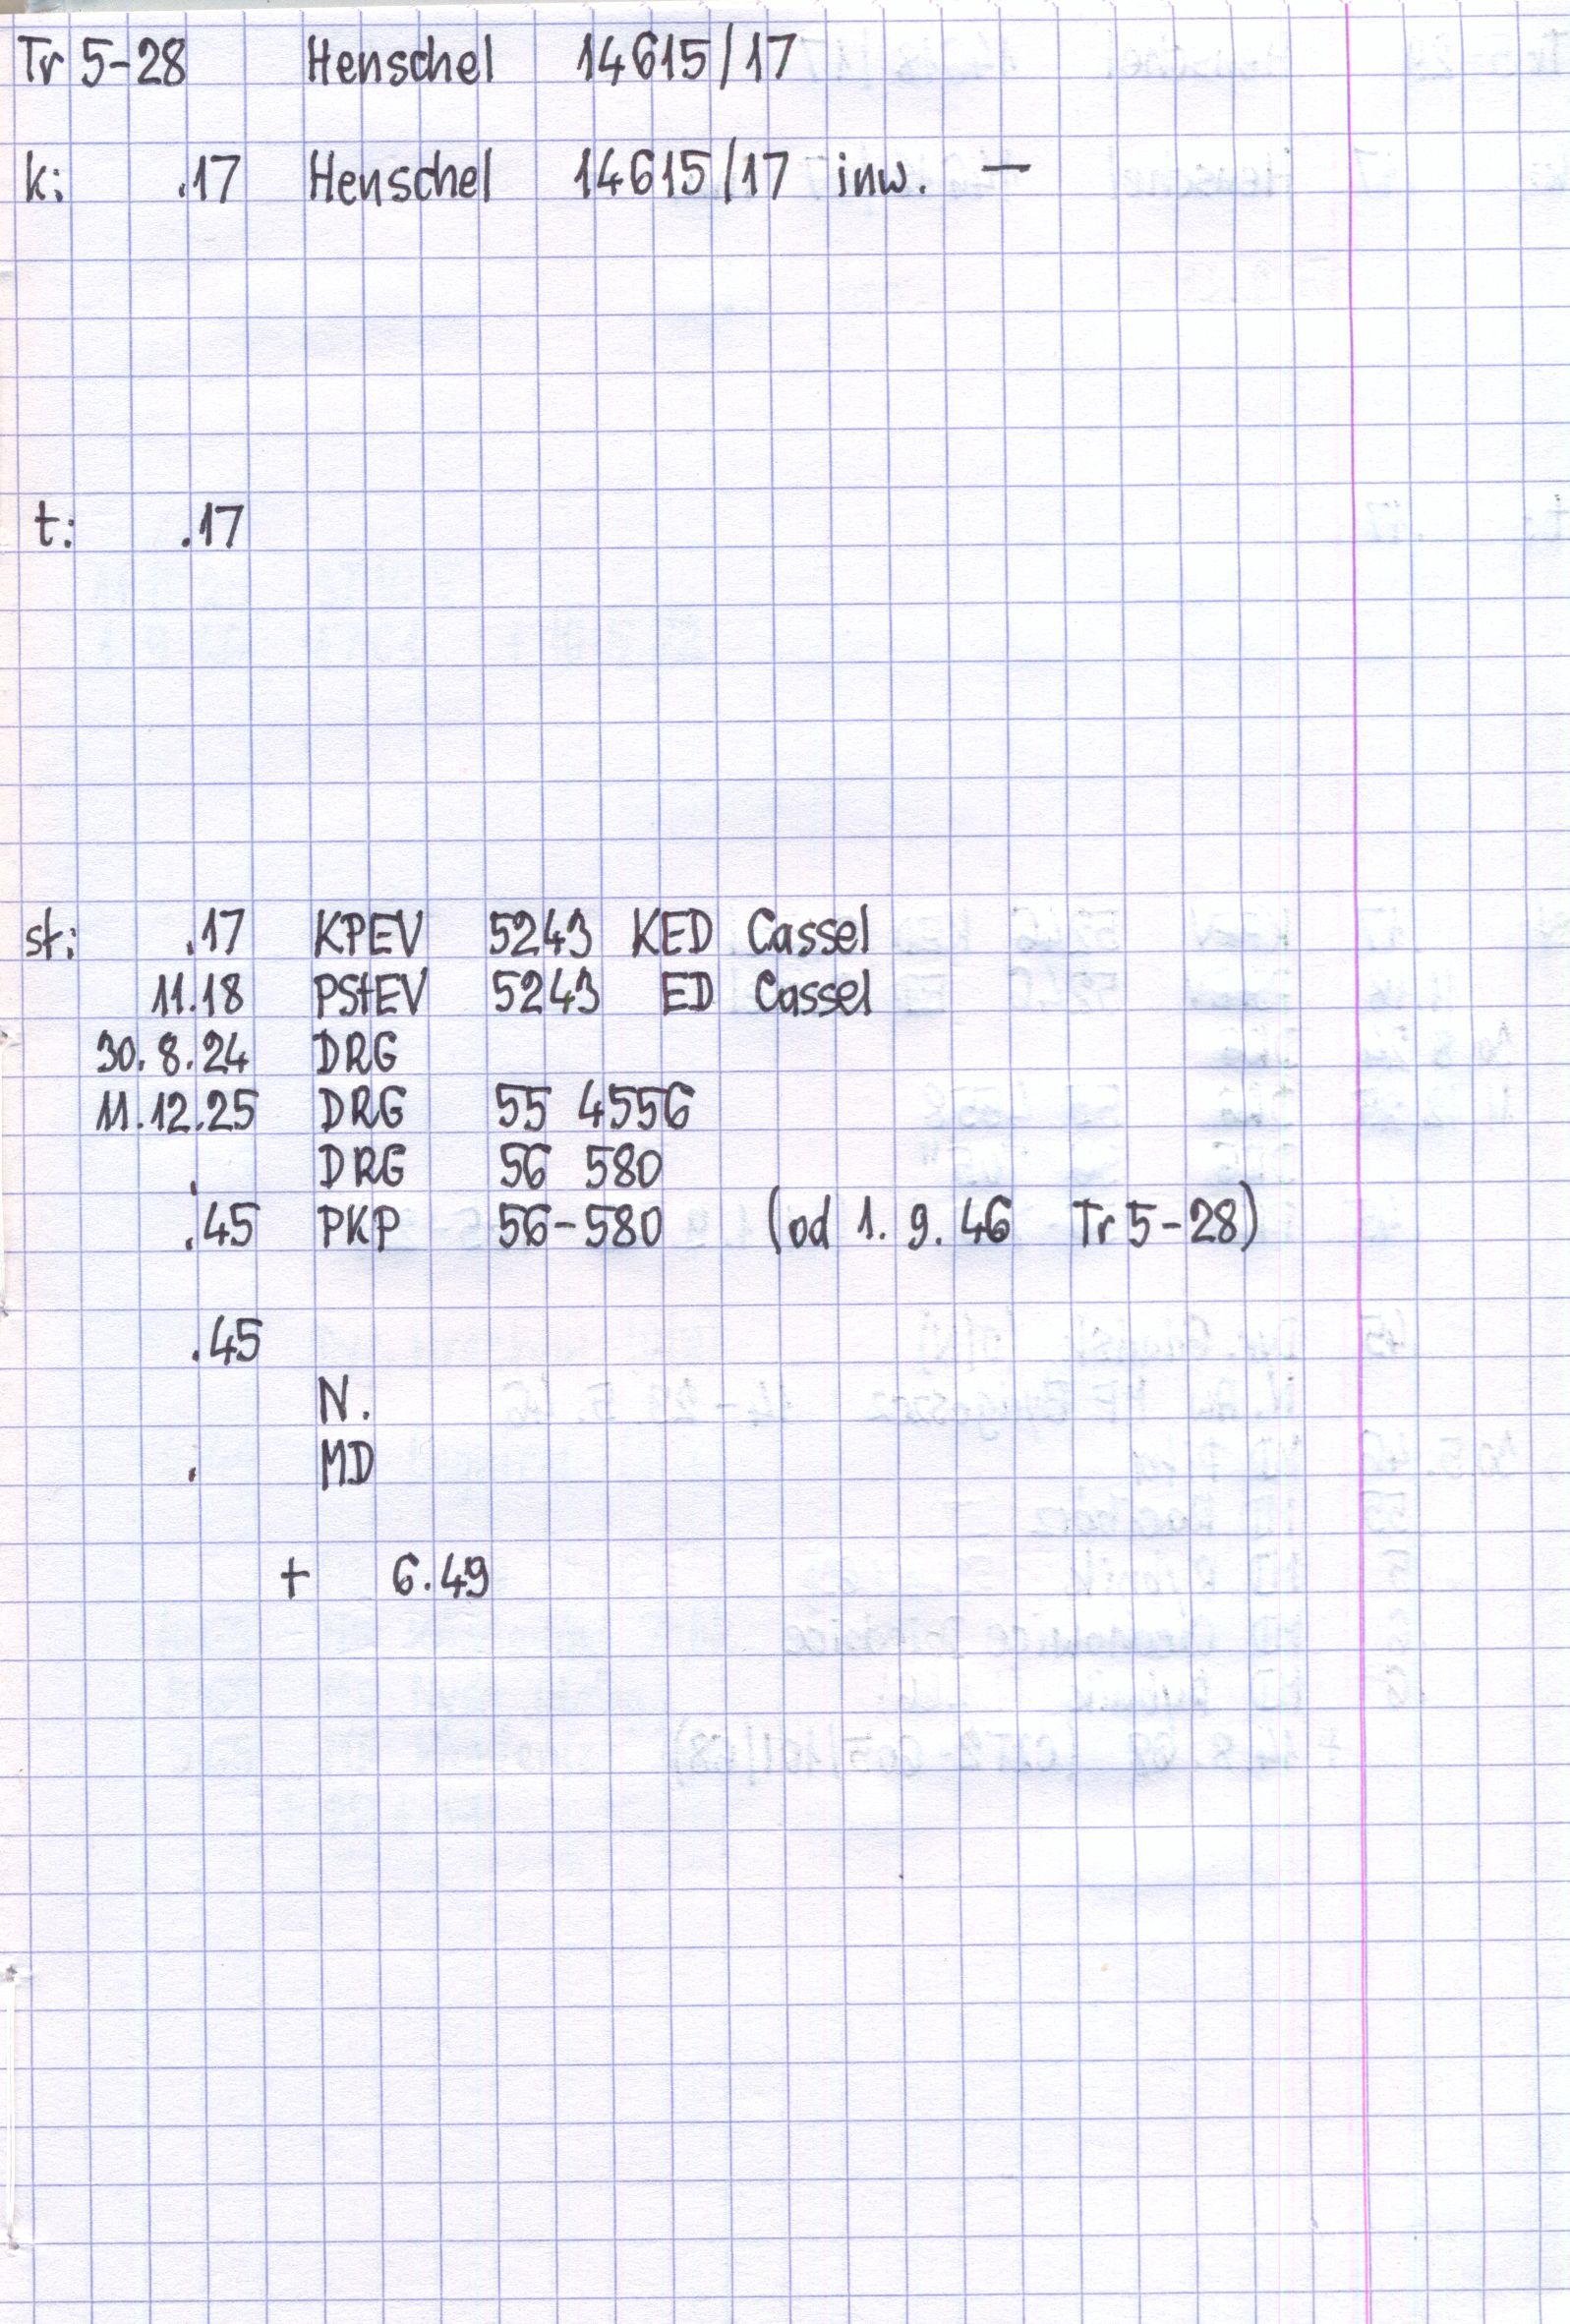 Tr 5-28 Henschel 14615/17
k: .17 Henschel 14615/17 inw. —
t: .17
st: .17 KPEV 5243 KED Cassel
11.18 PStEV 5243 ED Cassel
30.8.24 DRG
11.12.25 DRG 55 4556
. DRG 56 580
.45 PKP 56-580 (od 1.9.46 Tr 5-28)
.45
N.
. MD
+ 6.49